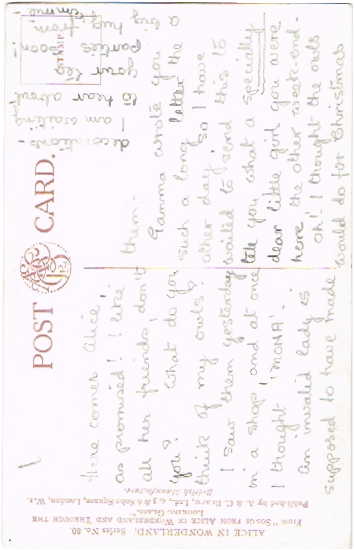 POST CARD.
ALICE IN WONDERLAND. Series No. 80.
FROM "SONGS FROM ALICE IN WONDERLAND AND THROUGH THE
LOOKING GLASS."
Published by A. & C. BLACK, Ltd., 4, 5 & 6 Soho Square, London, W.1.
British Manufacture.
Here comes 'Alice'
as promised! I like
all her friends don't
you? What do you
think of my owls?
I saw them yesterday
in a shop and at once
I thought 'MONA'
an invalid lady is
supposed to have made
them.
Gamma wrote you
such a long letter the
other day so I have
waited to send this to
tell you what a specially
dear little girl you were
here the other week-end-
Oh! I thought the owls
would do for Christmas
decorations!
— am waiting
to hear about
parties soon
big hug from